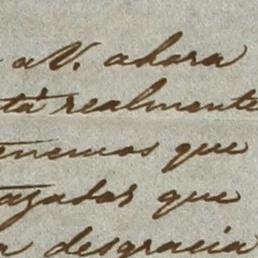 a V. ahora
stá realmente
enemos que
tazadas que
a desgracia